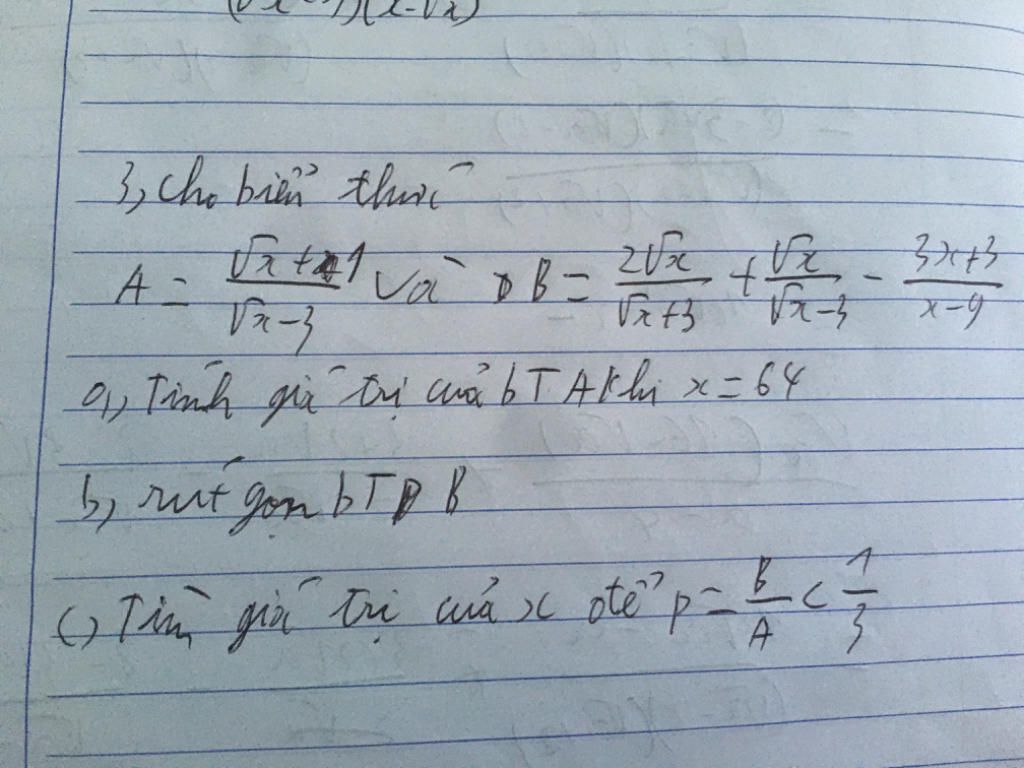 (x-√x)
3, cho biểu thức
A = (√x+1)/(√x-3) Và B = 2√x/(√x+3) + √x/(√x-3) - (3x+3)/(x-9)
a,) Tính giá trị của bT A khi x=64
b, rút gọn bT B
c,) Tìm giá trị của x để P = B/A < 1/3